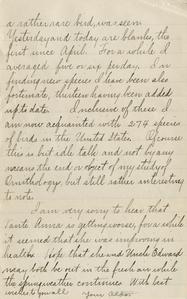 a rather rare bird, was seen.
Yesterday and today are blanks, the
first since April. For a while I
averaged five or six per day. In
finding new species I have been also
fortunate, thirteen having been added
up to date. Inclusive of these I
am now acquainted with 274 species
of birds in the United States. Of course
this is but idle talk and not by any
means the end or object of my study of
Ornithology, but still rather interesting
to note.
I am very sorry to hear that
Tante Anna is getting worse, for a while
it seemed that she was improving in
health. Hope that she and Uncle Edward
may both be out in the fresh air while
the spring weather continues. With best
wishes to you all
Your